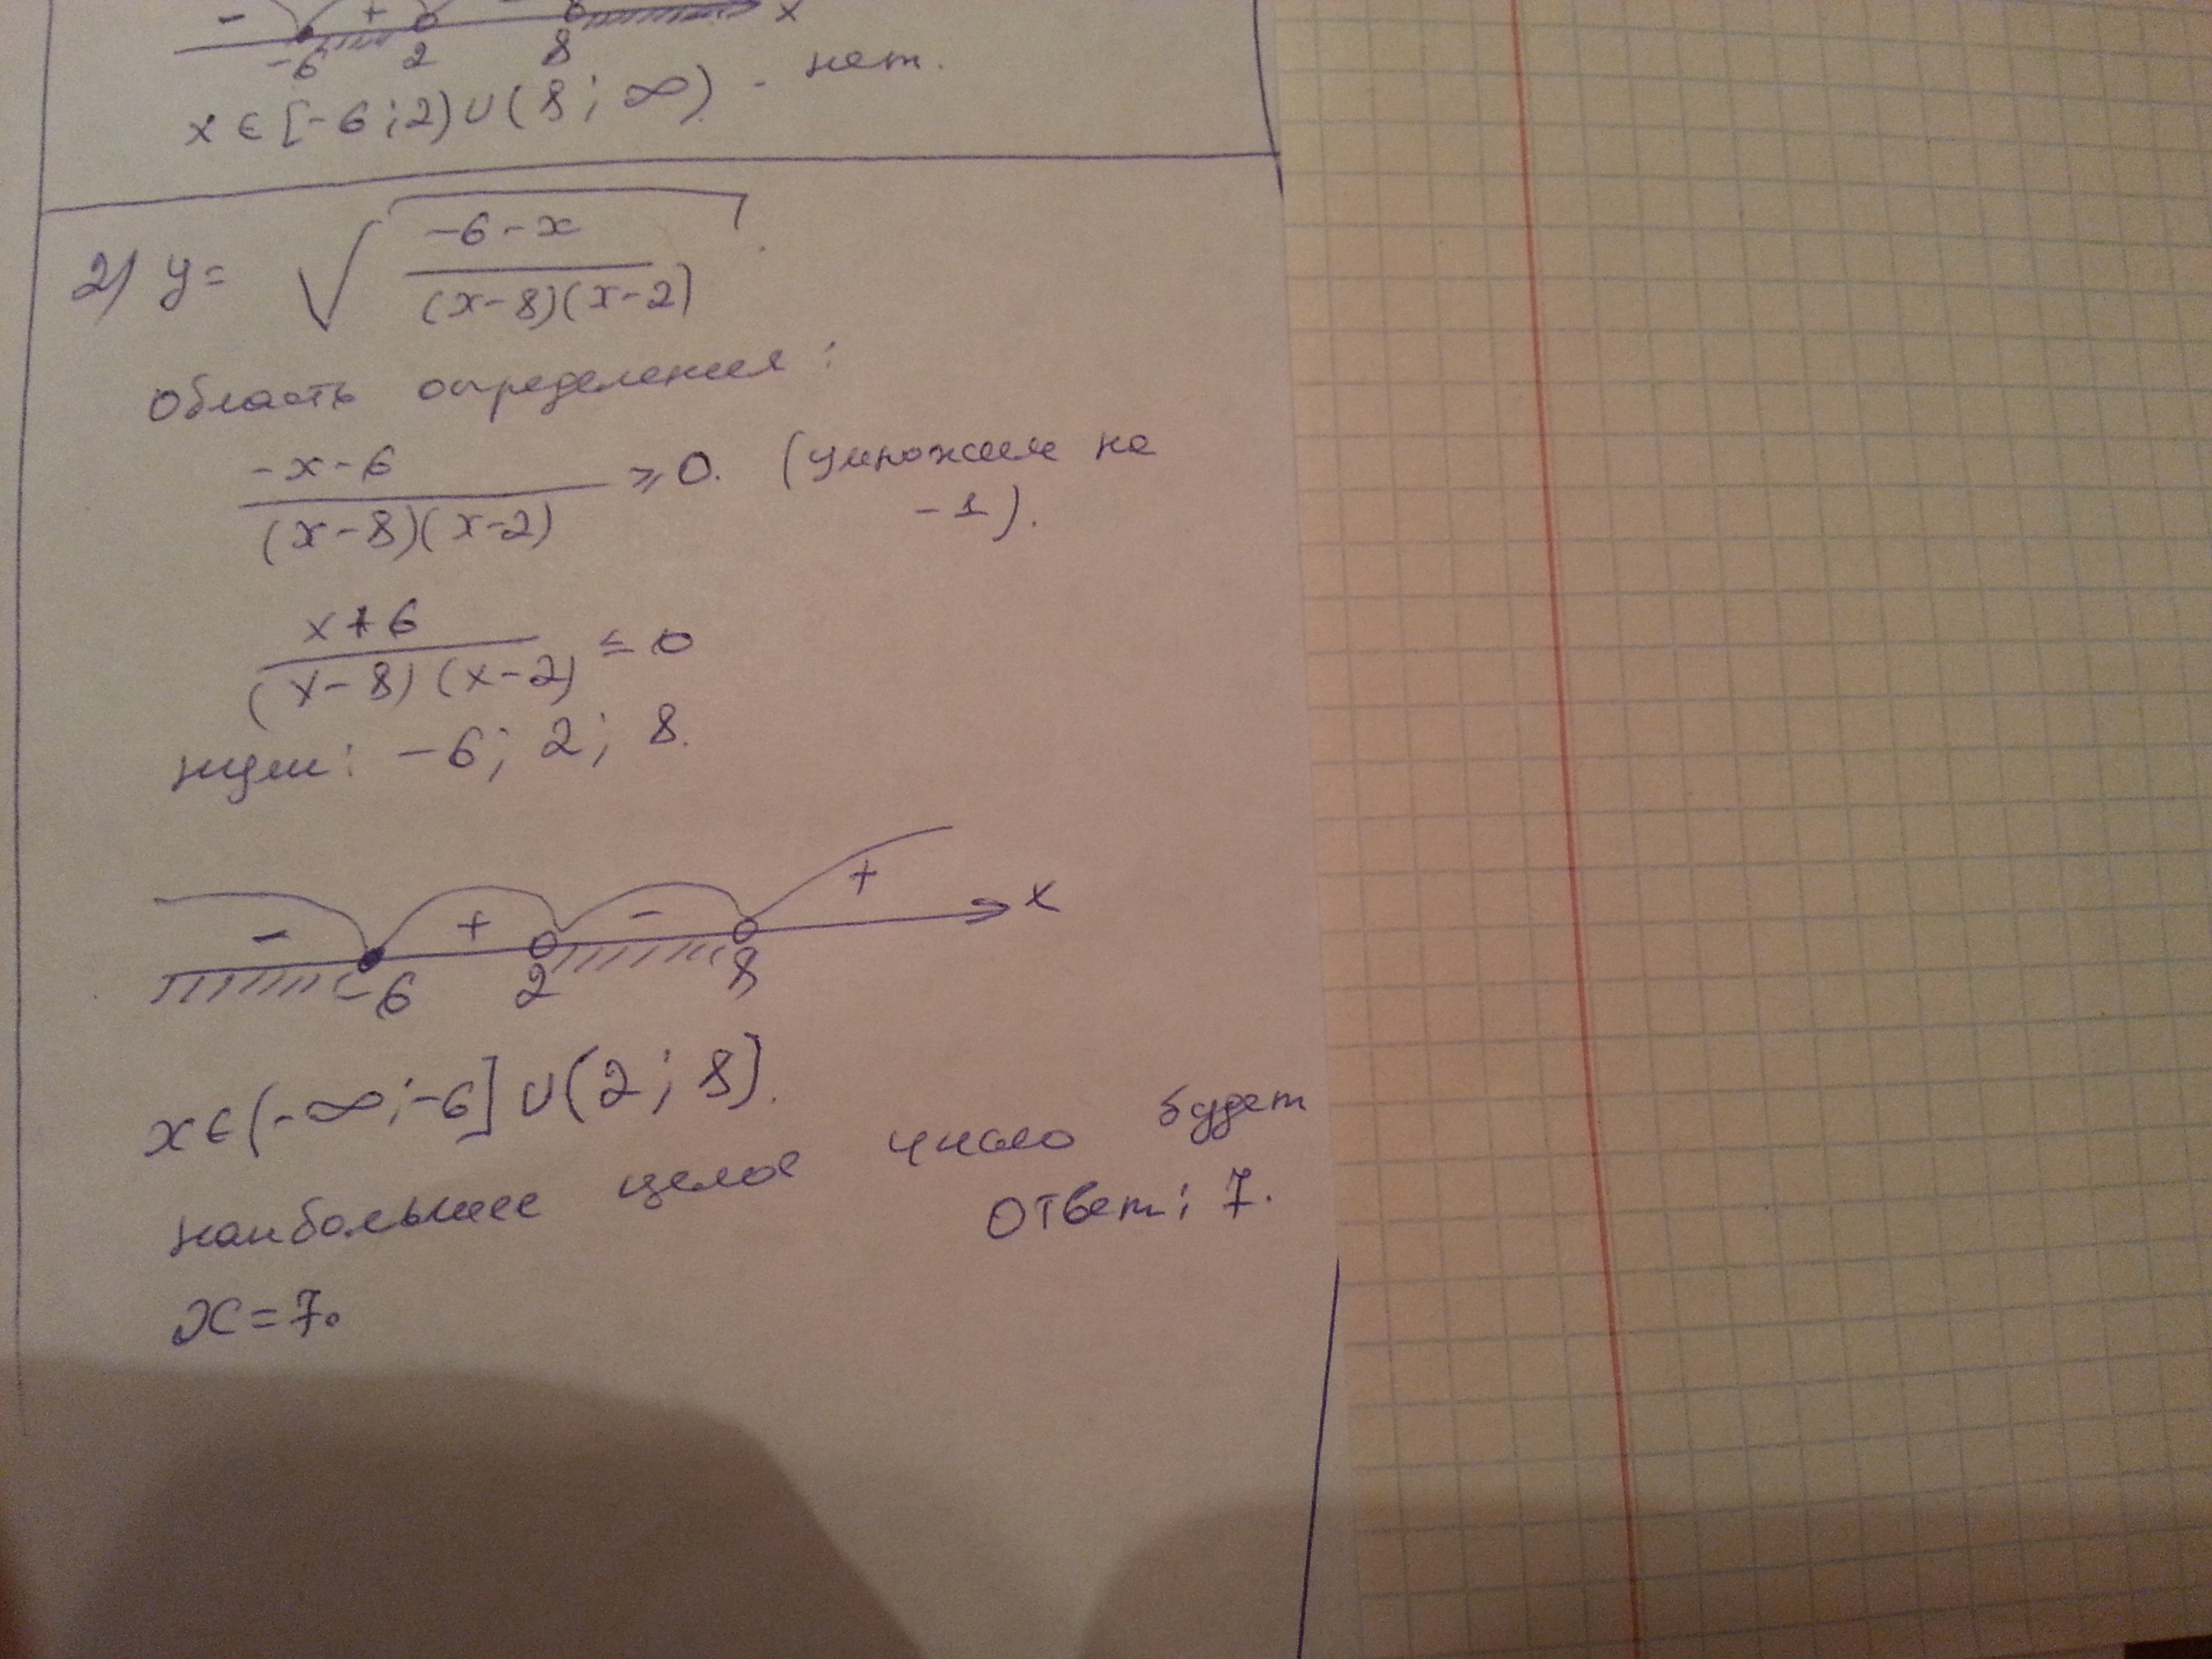 - + - x
-6 2 8
x ∈ [-6; 2) ∪ (8; ∞) - нет.
2) y = √((-6-x)/((x-8)(x-2))).
Область определения:
(-x-6)/((x-8)(x-2)) ≥ 0. (умножим на
-1).
(x+6)/((x-8)(x-2)) ≤ 0
нули: -6; 2; 8.
- + - + x
-6 2 8
x ∈ (-∞; -6] ∪ (2; 8).
наибольшее целое число будет
x = 7. Ответ: 7.